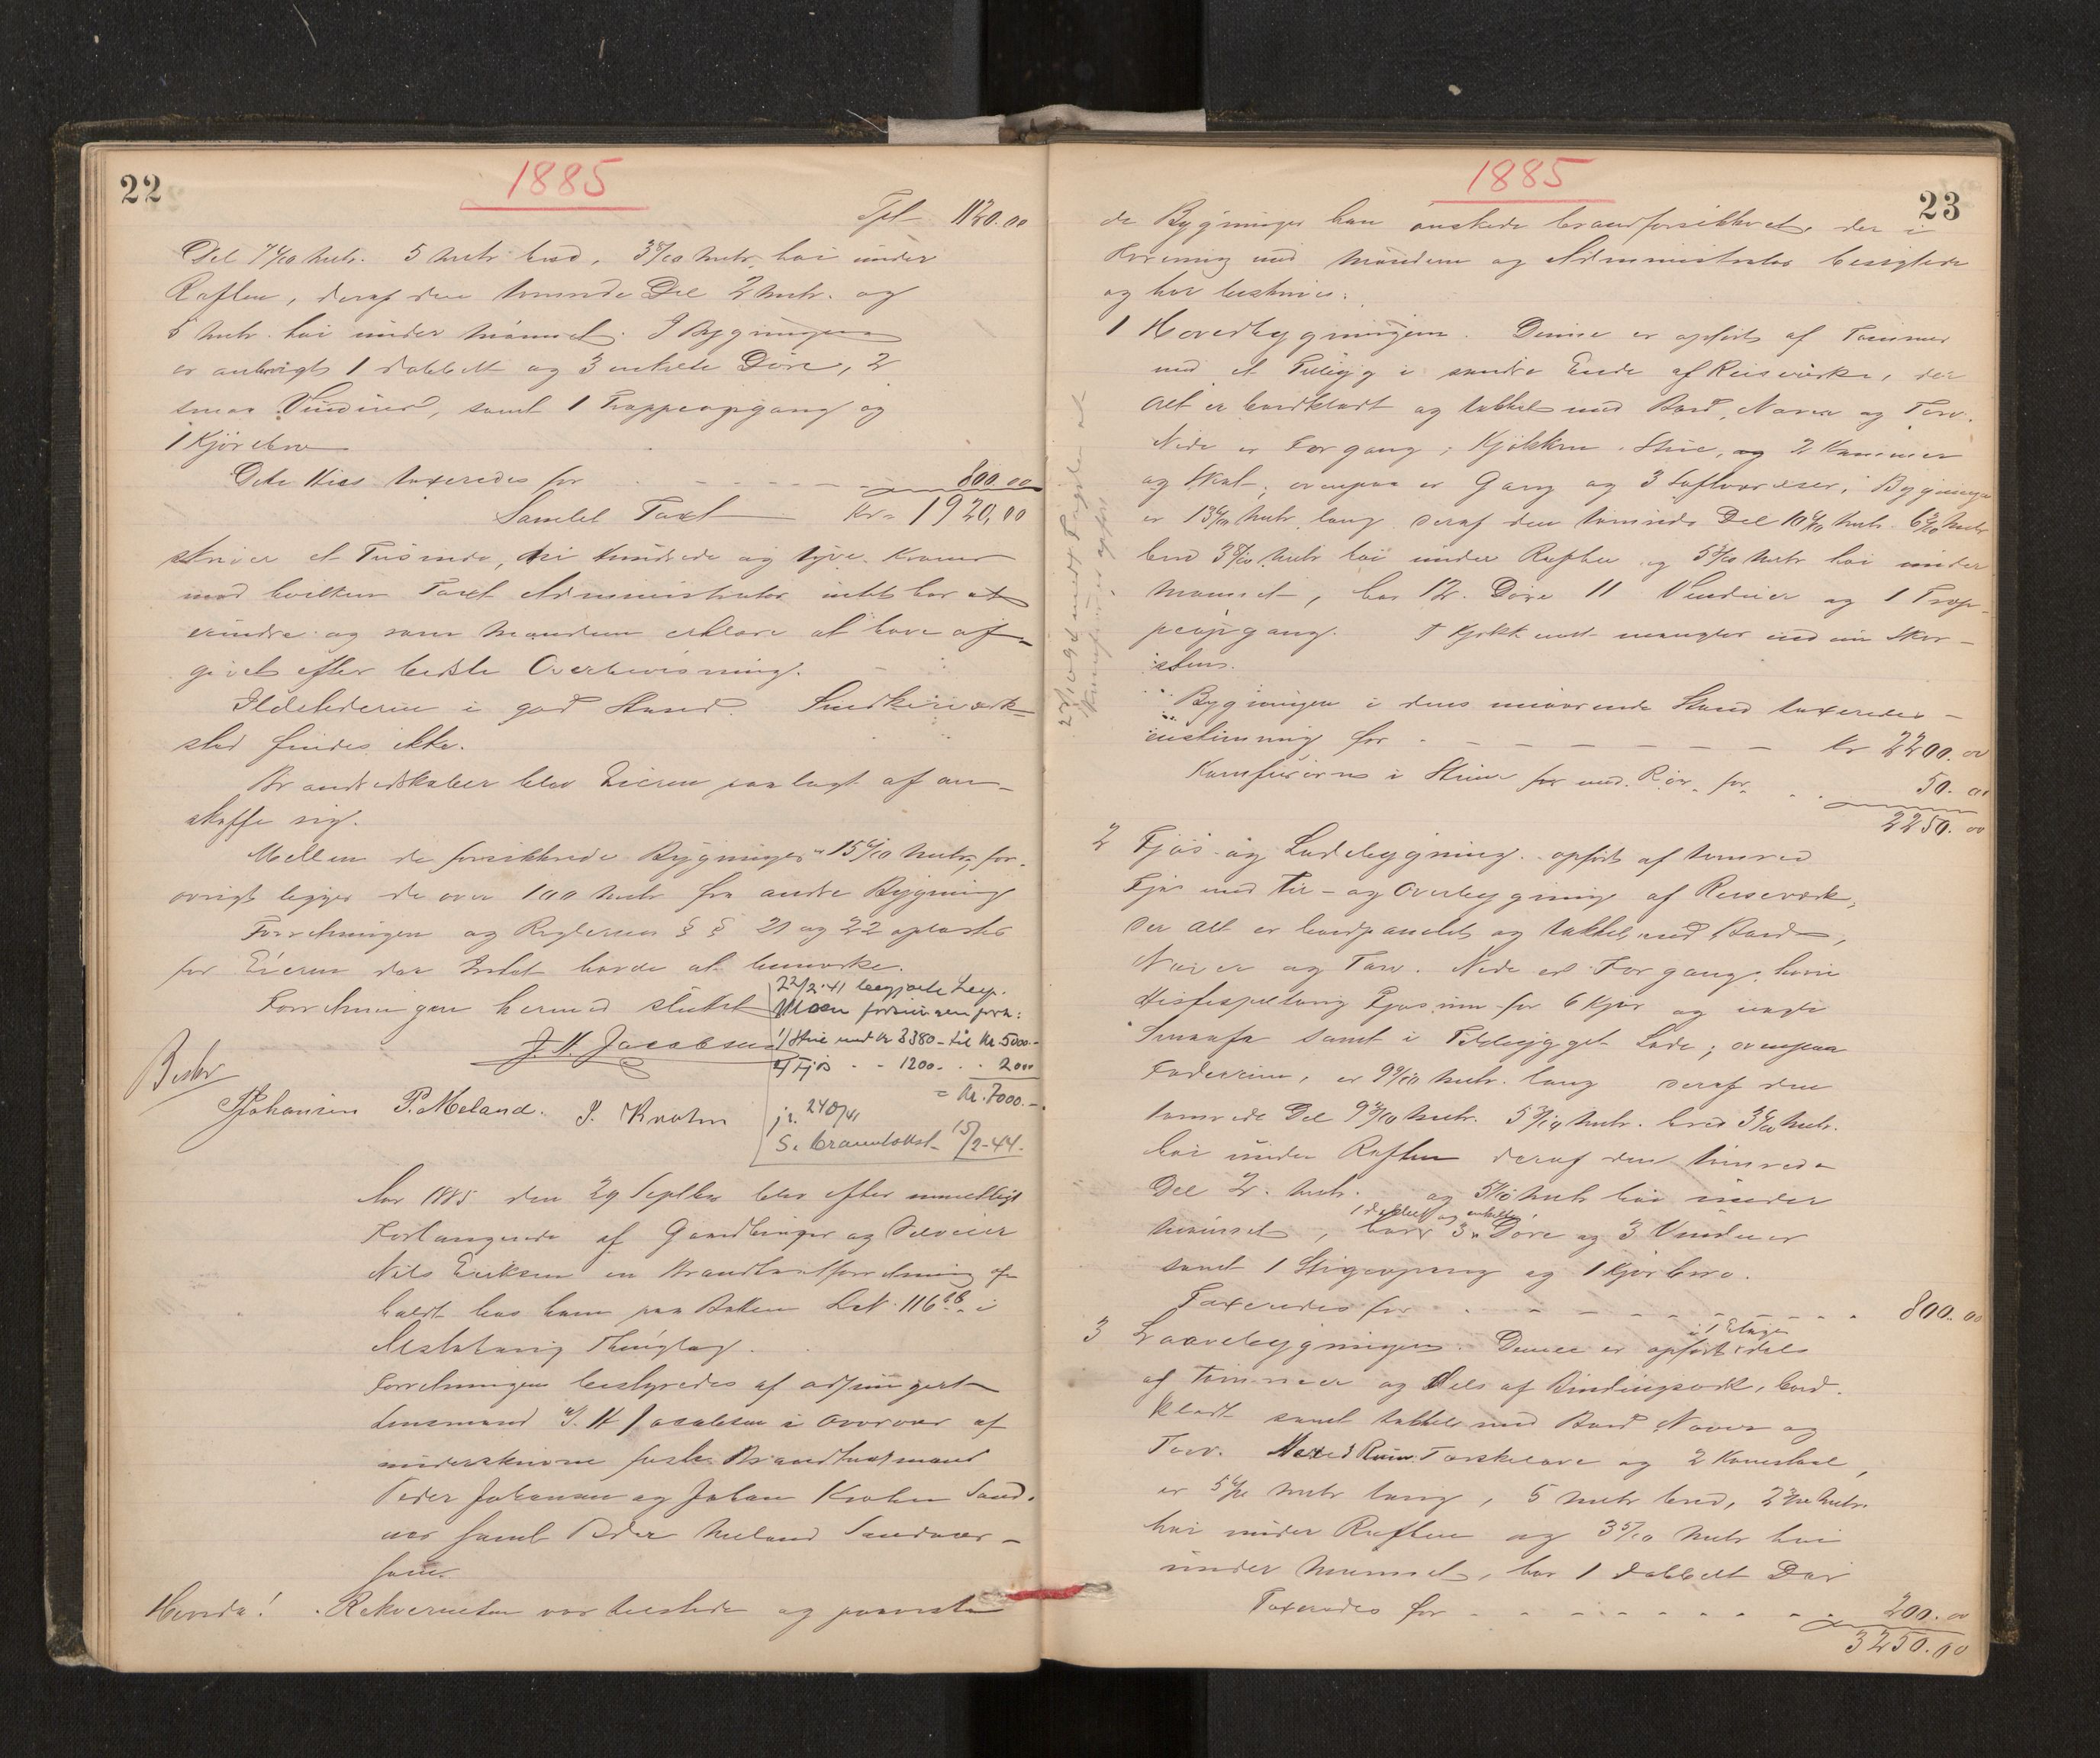 22
1885
Tpt 1120.00
Del 7 4/10 Metr. 5 Metr bred, 3 5/10 Metr. høi under
Raften, deraf den tømrede Del 2 Metr. og
5 Metr. høi under Mønnet. I Bygningen
er anbragt 1 dobbelt og 3 enkelte Døre, 2
smaa Vinduer, samt 1 Trappeopgang og
1 Kjørebro
Dette Hus taxeredes for 800.00
Samlet Taxt Kr. 1920,00
skriver et Tusinde, ni Hundrede og tyve Kroner
mod hvilken Taxt Administrator intet har at
erindre og som Mændene erklære at have af-
givet efter bedste Overbevisning.
Ildstederne i god Stand. Snedkerværk-
sted findes ikke.
Brandredskaber blev Eieren paalagt at an-
skaffe sig.
Mellem de forsikkrede Bygninger 15 6/10 Metr, for-
øvrigt ligger de over 100 Metr fra andre Bygning
Forretningen og Reglernes § § 21 og 22 oplæstes
for Eieren der Intet havde at bemærke.
Forretningen hermed sluttet
J. H. Jacobsen
Bestr
PJohansen P. Meland. J. Krohn
22/2-41 begjærte
Moen forsikringen forh:
1) Stue med kr 3380 - til kr. 5000.-
2) Fjøs - - 1200. - - 2000
= Kr. 7000.-
jr. 240/41
S. branntakst 15/2-44.
Aar 1885 den 29 Septbr blev efter mundtligt
Forlangende af Gaardbruger og Selveier
Nils Eriksen en Brandtaxtforretning af-
holdt hos ham paa Bakken LN. 116 i
Thinglag.
Forretningen bestyredes af adjungeret
Lensmand J. H. Jacobsen i Overvær af
underskrevne faste Brandtaxtmænd
Peder Johansen og Johan Krohn Sand-
nes samt Peder Meland Sandnes-
Hvorda! Rekvirenten var tilstede og paaviste
1885
23
de Bygninger han ønskede brandforsikkret, der i
Forening med Mændene og Administrator besigtede
og har beskrives:
1 Hovedbygningen. Denne er opført af Tømmer
med et Tilbyg i søndre Ende af Reisværke, der
Alt er bordklædt og tækket med Bord, Næver og Torv.
Nede er Forgang, Kjøkken, Stue, og 2 Kammer
og Skab; ovenpaa er Gang og 3 Loftværelser, Bygningen
er 13 4/10 Metr lang deraf den tømrede Del 10 4/10 Metr. 6 3/10 Metr
bred 3 8/10 Metr høi under Raften og 5 8/10 Metr høi under
Mønnet, har 12 Døre 11 Vinduer og 1 Trap-
peopgang. I Kjøkkenet mangler endnu Skor-
sten.
Bygningen i dens nuværende Stand taxeredes
enstemmig for Kr 2200.00
Kamfuiovns i Stuen for med Rør for 50.00
2250.00
2 Fjøs og Ladebygning opført af tømred
Fjøs med Til- og Overbygning af Reisværk,
der Alt er bordpanelet og tækket med Bord,
Næver og Torv. Nede er Forgang, hvori
Fjøsrum for 6 Kjør og nogle
Smaafæ samt i Tilbygget Lade; ovenpaa
Foderrum, er 9 9/10 Metr. lang deraf den
tømrede Del 9 3/10 Metr. 5 3/10 Metr. bred 3 6/10 Metr.
høi under Raften deraf den tømrede
Del 2. Metr. og 5 1/10 Metr høi under
1 dobbelt og enkelte
Mønnet, har 3 Døre og 3 Vinduer
samt 1 Stigeopgang og 1 Kjørbro.
Taxeredes for 800.00
3 Laavebygningen. Denne er opført i 1 Etage dels
af Tømmer og dels af Bindingsværk, bord-
klædt samt tækket med Bord Næver og
Torv. Med Rum Tærskelaave og 2 Kornstaal,
er 5 4/10 Metr lang, 5 Metr bred, 2 3/10 Metr.
høi under Raften og 3 5/10 Metr høi
under Mønnet, har 1 dobbelt Dør
Taxeredes for 200.00
3250.00